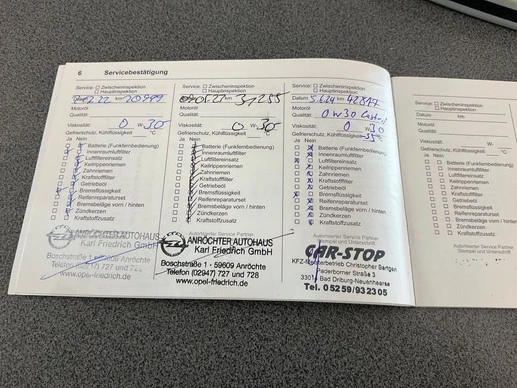 6 Servicebestätigung
Service: □ Zwischeninspektion
□ Hauptinspektion
km 20999
Motoröl
Qualität
Viskosität: 0 W 30
Gefrierschutz, Kühlflüssigkeit
Ja Nein
Batterie (Funkfernbedienung)
Innenraumluftfilter
Luftfiltereinsatz
Keilrippenriemen
Zahnriemen
Kraftstofffilter
Getriebeöl
Bremsflüssigkeit
Reifenreparaturset
Bremsbeläge vorn / hinten
Zündkerzen
Kraftstoffzusatz
ANRÖCHTER AUTOHAUS
Karl Friedrich GmbH
Boschstraße 1
www.opel-friedrich.de
Service: □ Zwischeninspektion
□ Hauptinspektion
km 31255
Motoröl
Qualität
Viskosität: 0 W 30
Gefrierschutz, Kühlflüssigkeit
Ja Nein
Batterie (Funkfernbedienung)
Innenraumluftfilter
Luftfiltereinsatz
Keilrippenriemen
Zahnriemen
Kraftstofffilter
Getriebeöl
Bremsflüssigkeit
Reifenreparaturset
Bremsbeläge vorn / hinten
Zündkerzen
Kraftstoffzusatz
Autorisierter Service Partner
ANRÖCHTER AUTOHAUS
Karl Friedrich GmbH
Boschstraße 1 · 59609 Anröchte
Telefon (02947) 727 und 728
www.opel-friedrich.de
Service: □ Zwischeninspektion
□ Hauptinspektion
Datum 5.6.24 km 42817
Motoröl
Qualität 0 W 30
Viskosität: 0 W 30
Gefrierschutz, Kühlflüssigkeit -35 °C
Ja Nein
Batterie (Funkfernbedienung)
Innenraumluftfilter
Luftfiltereinsatz
Keilrippenriemen
Zahnriemen
Kraftstofffilter
Getriebeöl
Bremsflüssigkeit
Reifenreparaturset
Bremsbeläge vorn / hinten
Zündkerzen
Kraftstoffzusatz
Autorisierter Service Partner
Stempel und Unterschrift
CAR-STOP
KFZ-Meisterbetrieb Christopher Bartgen
Paderborner Straße 3
33014 Bad Driburg-Neuenheerse
Tel. 05259/932305
Service: □ Zwischeninspektion
□ Hauptinspektion
Datum km
Motoröl
Qualität
Viskosität: W-
Gefrierschutz, Kühlflüssigkeit °C
Ja Nein
Batterie (Funkfernbedienung)
Innenraumluftfilter
Luftfiltereinsatz
Keilrippenriemen
Zahnriemen
Kraftstofffilter
Getriebeöl
Bremsflüssigkeit
Reifenreparaturset
Bremsbeläge vorn / hinten
Zündkerzen
Kraftstoffzusatz
Autorisierter Service Partner
Stempel und Unterschrift